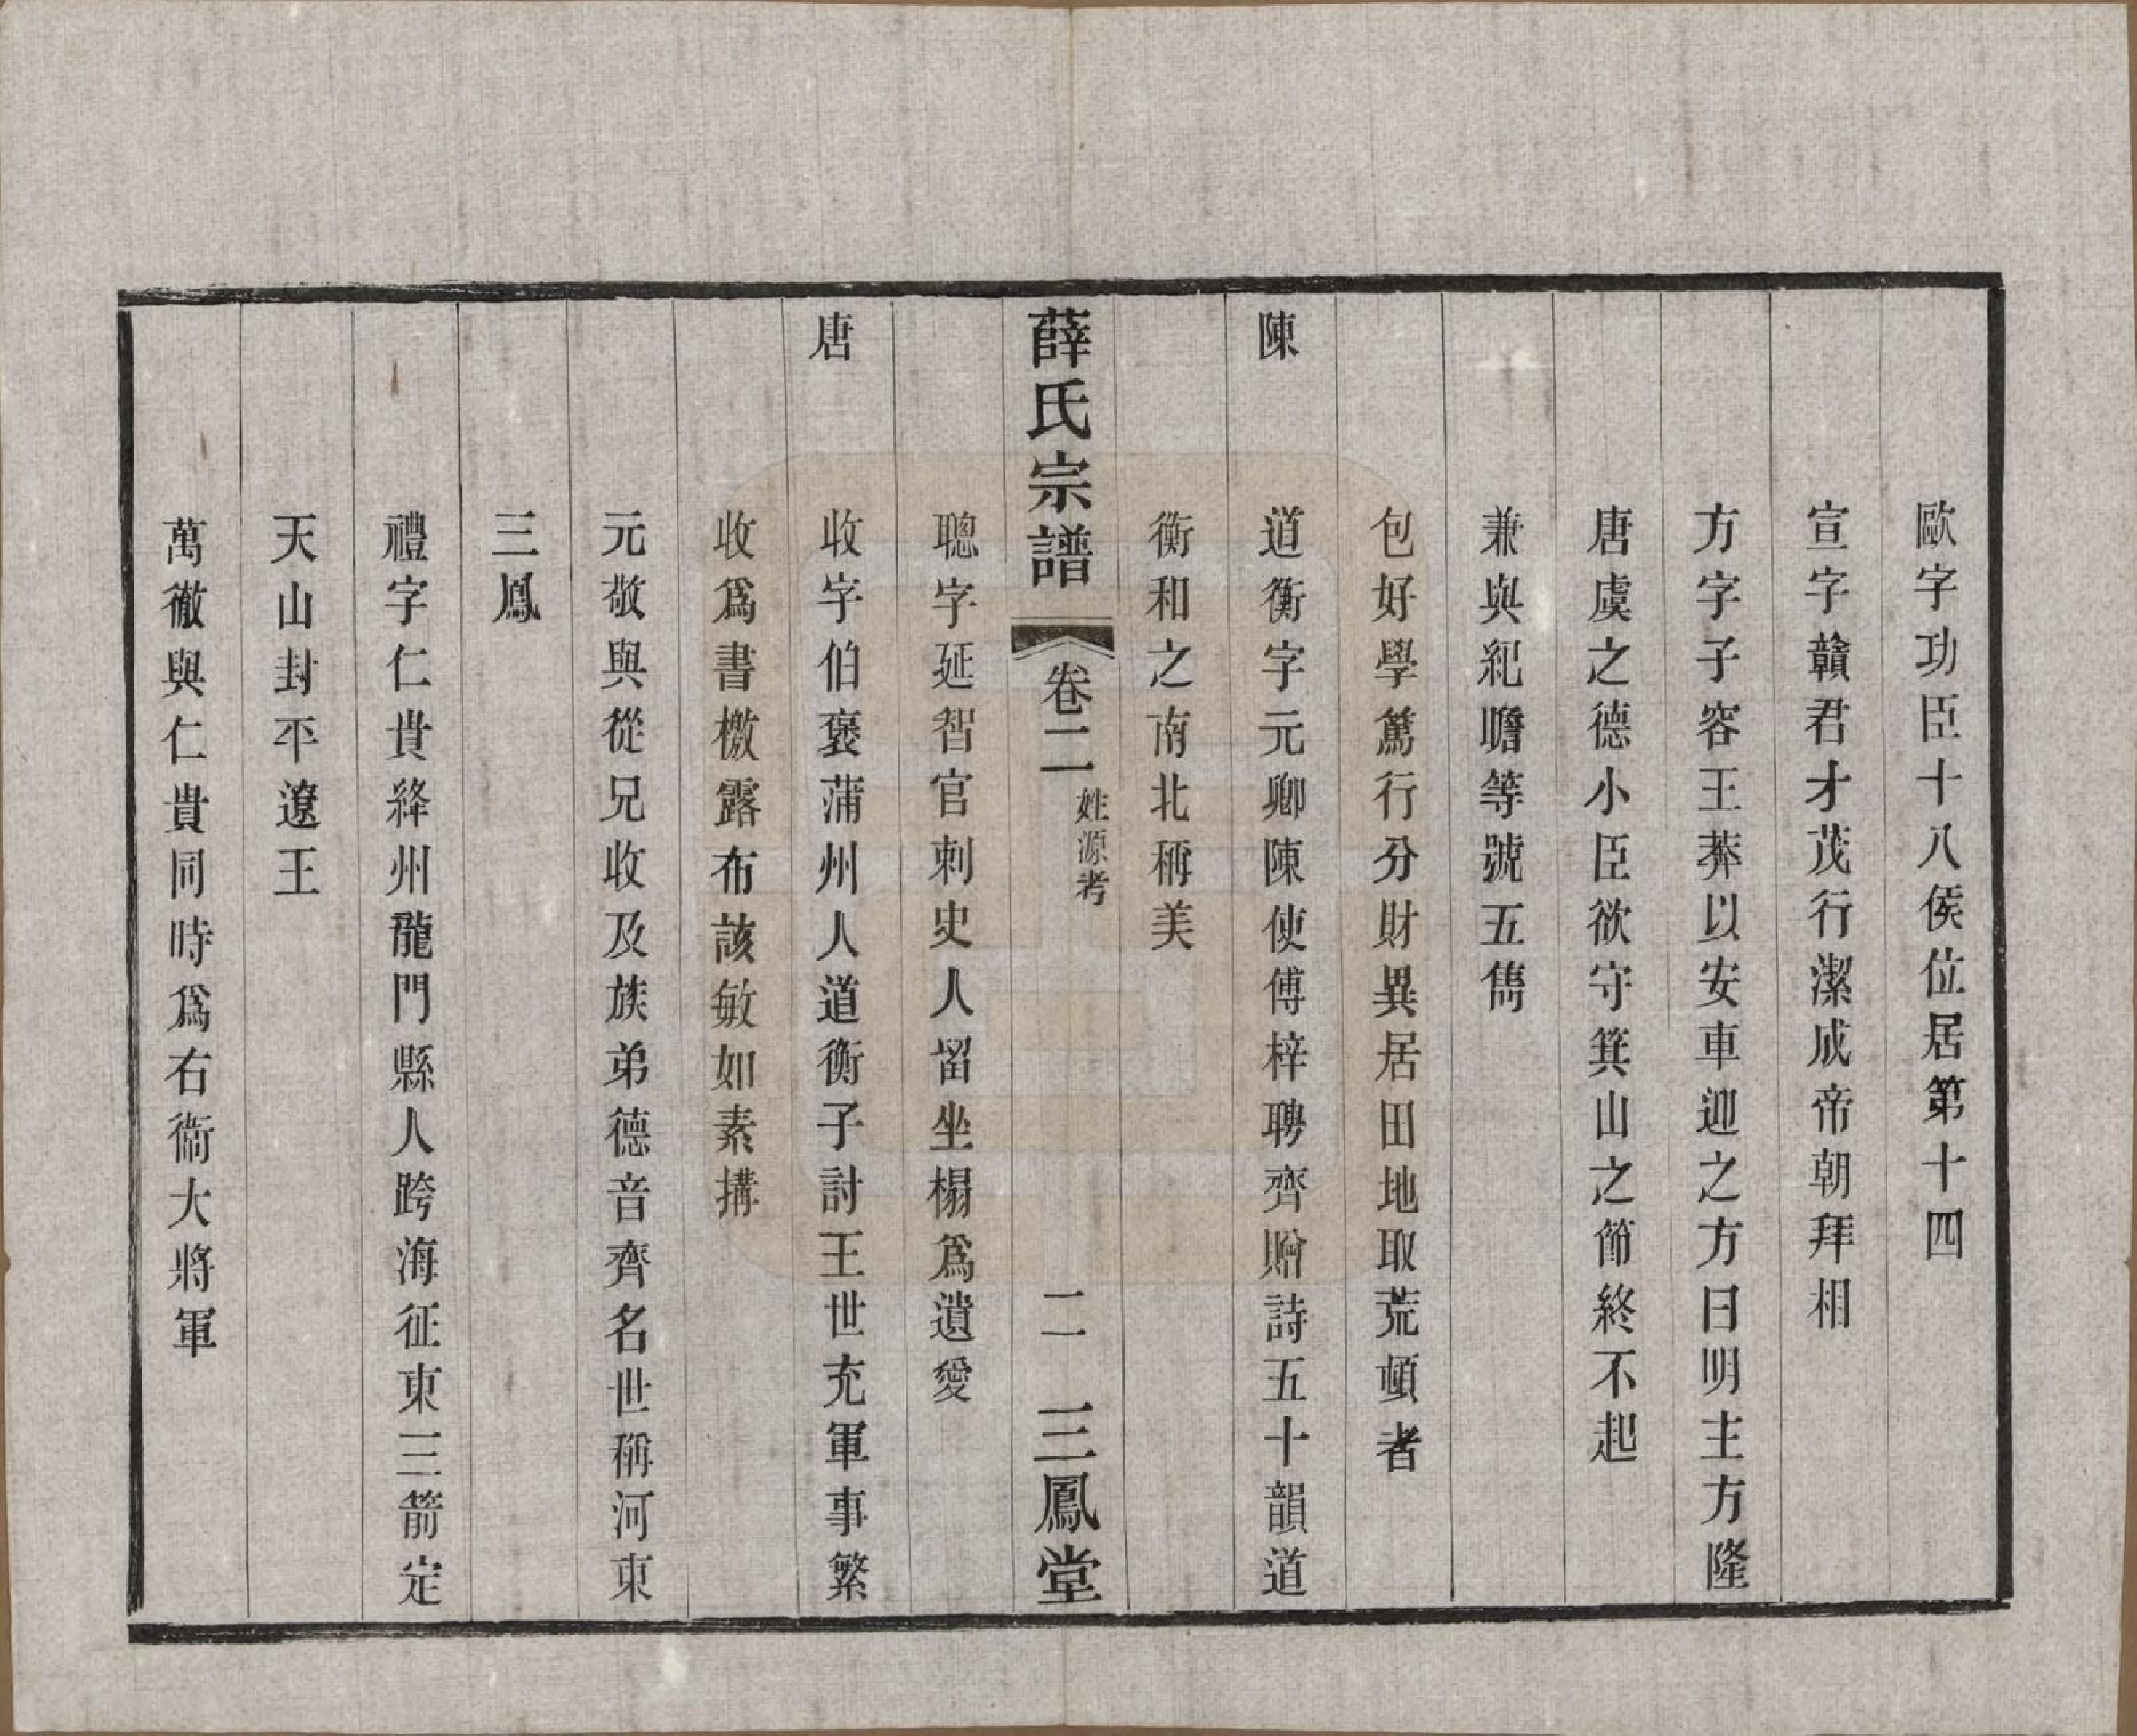 歐字功臣十八侯位居第十四
宣字贛君才茂行潔成帝朝拜相
方字子容王莽以安車迎之方曰明主方隆
唐虞之德小臣欲守箕山之節終不起
兼與紀瞻等號五儁
包好學篤行分財異居田地取荒頓者
陳
道衡字元卿陳使傅縡聘齊贈詩五十韻道
衡和之南北稱美
薛氏宗譜
卷二
姓源考
二
三鳳堂
聰字延智官刺史人留坐榻爲遺愛
唐
收字伯褒蒲州人道衡子討王世充軍事繁
收爲書檄露布該敏如素搆
元敬與從兄收及族弟德音齊名世稱河東
三鳳
禮字仁貴絳州龍門縣人跨海征東三箭定
天山封平遼王
萬徹與仁貴同時爲右衞大將軍